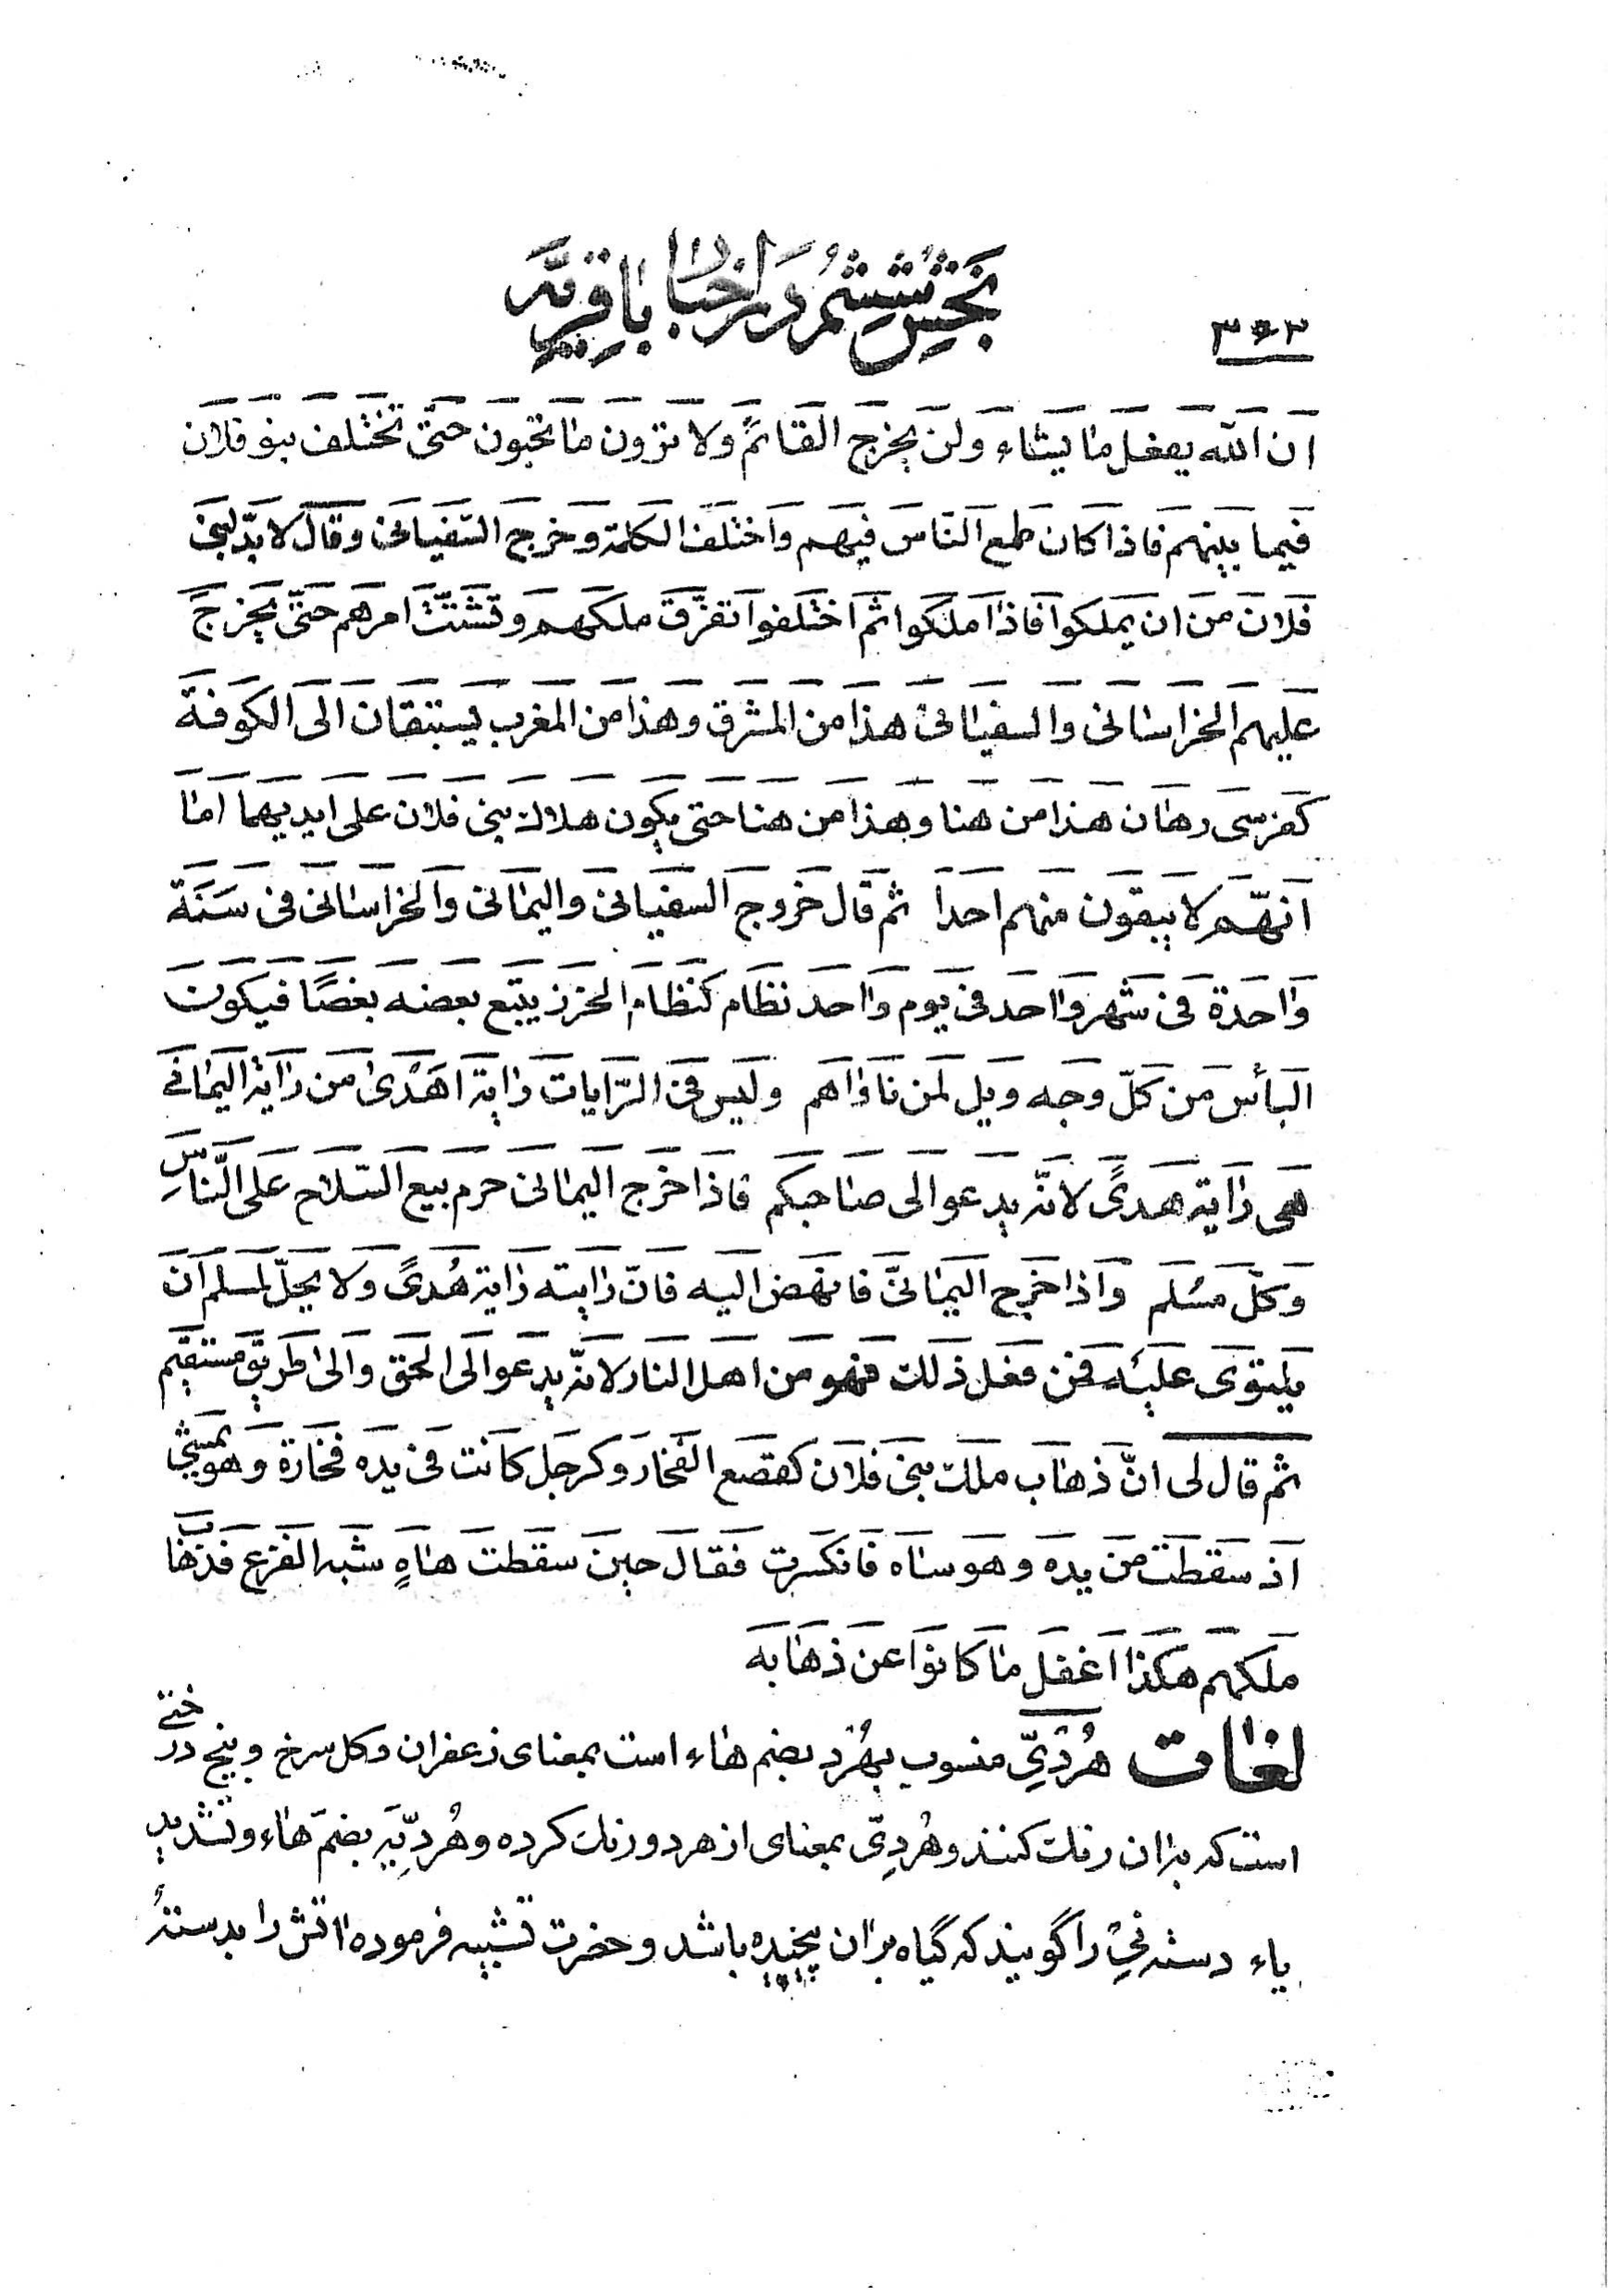 بخش ششم در اخبار باقریّه
۳۶۳
ان الله یفعل ما یشاء ولن یخرج القائم ولا ترون ما تحبون حتّی تختلف بنو فلان
فیما بینهم فاذا کان طمع النّاس فیهم واختلف الکلمة وخرج السّفیانی وقال لابدّ لبنی
فلان من ان یملکوا فاذا ملکوا ثم اختلفوا تفرّق ملکهم وتشتّت امرهم حتّی یخرج
علیهم الخراسانی والسفیانی هذا من المشرق وهذا من المغرب یستبقان الی الکوفة
کفرسی رهان هذا من هنا وهذا من هنا حتی یکون هلاک بنی فلان علی ایدیهما اما
انهّم لا یبقون منهم احدا ثم قال خروج السفیانی والیمانی والخراسانی فی سنة
واحدة فی شهر واحد فی یوم واحد نظام کنظام الخرز یتبع بعضه بعضًا فیکون
البأس من کلّ وجه ویل لمن ناواهم ولیس فی الرّایات رایة اهدی من رایة الیمانی
هی رایة هدیً لانّه یدعو الی صاحبکم فاذا خرج الیمانی حرم بیع السّلاح علی النّاسِ
وکلّ مسُلم واذا خرج الیمانیّ فانهض الیه فانّ رایته رایة هُدیً ولا یحلّ لمسلم ان
یلتوی علیه فمن فعل ذلک فهو من اهل النار لانّه یدعو الی الحق والی طریق مستقیم
ثم قال لی انّ ذهاب ملک بنی فلان کقصع الفخار وکرجل کانت فی یده فخارة وهو یمشی
اذ سقطت من یده وهو ساه فانکسرت فقال حین سقطت هاهِ شبه الفزع فذهاب
ملکهم هکذا اغفل ما کانوا عن ذهابه
لغات هُردیِّ منسوب بهُرْد بضم هاء است بمعنای زعفران و کل سرخ و بیخ درختی
است که بران رنک کنند و هُردِیّ بمعنای از هر دو رنک کرده و هُردِیّه بضمّ هاء و تشدید
یاء دسته نیِ را گویند که گیاه بران پیچیده باشد و حضرت تشبیه فرموده اتش را بدستهٔ